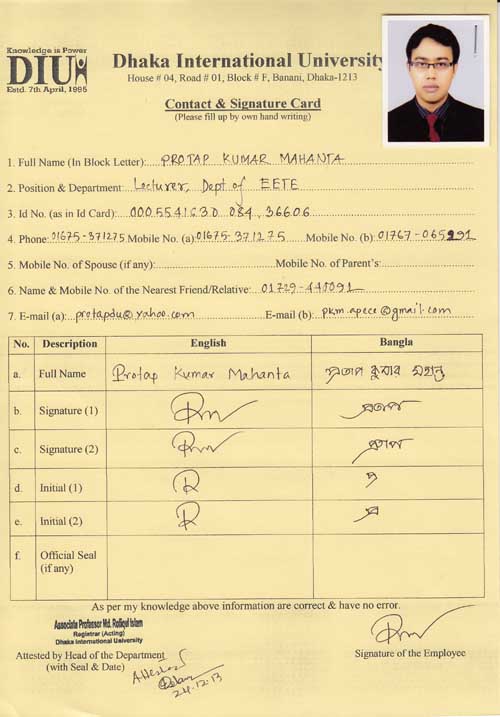 Knowledge is Power
DIU
Estd. 7th April, 1995
Dhaka International University
House # 04, Road # 01, Block # F, Banani, Dhaka-1213
Contact & Signature Card
(Please fill up by own hand writing)
1. Full Name (In Block Letter): PROTAP KUMAR MAHANTA
2. Position & Department: Lecturer, Dept of EETE
3. Id No. (as in Id Card): 0005541630 084, 36606
4. Phone: 01675-371275 Mobile No. (a): 01675-371275 Mobile No. (b): 01767-065291
5. Mobile No. of Spouse (if any): Mobile No. of Parent's:
6. Name & Mobile No. of the Nearest Friend/Relative: 01729-440091
7. E-mail (a): protapdu@yahoo.com E-mail (b): pkm.apece@gmail.com
No. Description English Bangla
a. Full Name Protap Kumar Mahanta প্রতাপ কুমার মহন্ত
b. Signature (1) প্রতাপ
c. Signature (2) প্রতাপ
d. Initial (1) প্র
e. Initial (2) প্র
f. Official Seal
(if any)
As per my knowledge above information are correct & have no error.
Associate Professor Md. Rofiqul Islam
Registrar (Acting)
Dhaka International University
Attested by Head of the Department
(with Seal & Date)
Signature of the Employee
Attested
24.12.13